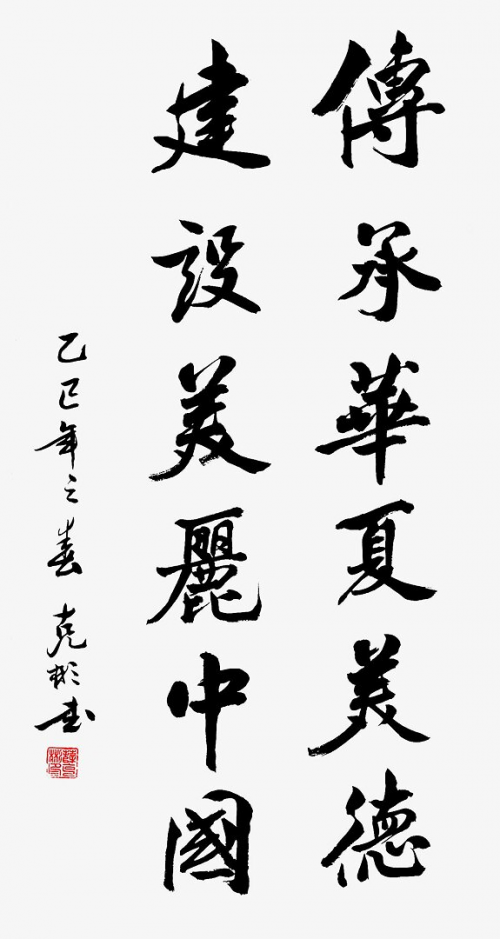 傳承華夏美德
建設美麗中國
乙巳年之春 克彬书